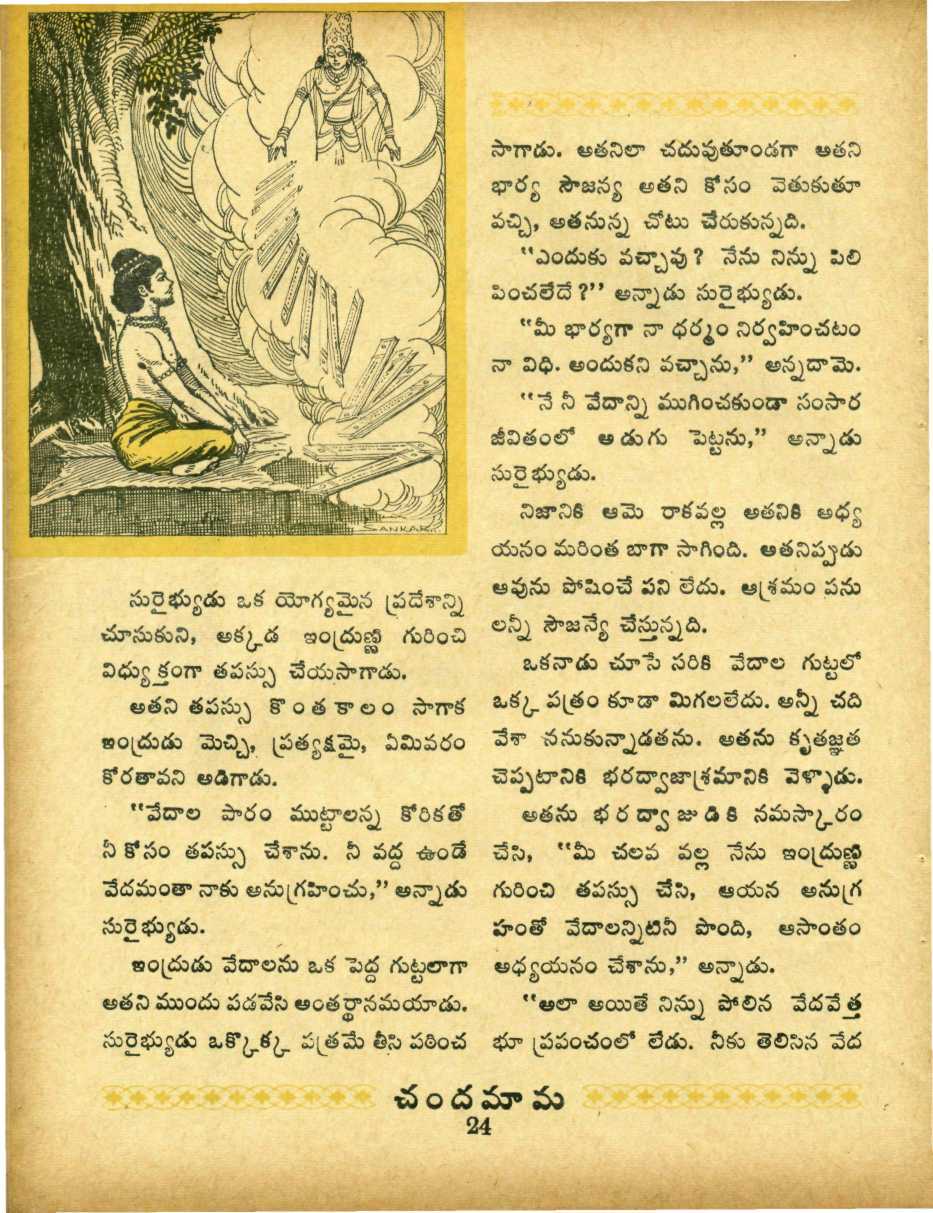 SANKAR
సురైభ్యుడు ఒక యోగ్యమైన ప్రదేశాన్ని
చూసుకుని, అక్కడ ఇంద్రుణ్ణి గురించి
విధ్యుక్తంగా తపస్సు చేయసాగాడు.
అతని తపస్సు కొంతకాలం సాగాక
ఇంద్రుడు మెచ్చి, ప్రత్యక్షమై, ఏమివరం
కోరతావని అడిగాడు.
“వేదాల పారం ముట్టాలన్న కోరికతో
నీ కోసం తపస్సు చేశాను. నీ వద్ద ఉండే
వేదమంతా నాకు అనుగ్రహించు,” అన్నాడు
సురైభ్యుడు.
ఇంద్రుడు వేదాలను ఒక పెద్ద గుట్టలాగా
అతని ముందు పడవేసి అంతర్థానమయాడు.
సురైభ్యుడు ఒక్కొక్క పత్రమే తీసి పఠించ
సాగాడు. అతనిలా చదువుతూండగా అతని
భార్య సౌజన్య అతని కోసం వెతుకుతూ
వచ్చి, అతనున్న చోటు చేరుకున్నది.
“ఎందుకు వచ్చావు? నేను నిన్ను పిలి
పించలేదే?” అన్నాడు సురైభ్యుడు.
“మీ భార్యగా నా ధర్మం నిర్వహించటం
నా విధి. అందుకని వచ్చాను,” అన్నదామె.
“నే నీ వేదాన్ని ముగించకుండా సంసార
జీవితంలో అడుగు పెట్టను,” అన్నాడు
సురైభ్యుడు.
నిజానికి ఆమె రాకవల్ల అతనికి అధ్య
యనం మరింత బాగా సాగింది. అతనిప్పుడు
ఆవును పోషించే పని లేదు. ఆశ్రమం పను
లన్నీ సౌజన్యే చేస్తున్నది.
ఒకనాడు చూసే సరికి వేదాల గుట్టలో
ఒక్క పత్రం కూడా మిగలలేదు. అన్నీ చది
వేశా ననుకున్నాడతను. అతను కృతజ్ఞత
చెప్పటానికి భరద్వాజాశ్రమానికి వెళ్ళాడు.
అతను భరద్వాజుడికి నమస్కారం
చేసి, “మీ చలవ వల్ల నేను ఇంద్రుణ్ణి
గురించి తపస్సు చేసి, ఆయన అనుగ్ర
హంతో వేదాలన్నిటినీ పొంది, ఆసాంతం
అధ్యయనం చేశాను,” అన్నాడు.
“అలా అయితే నిన్ను పోలిన వేదవేత్త
భూ ప్రపంచంలో లేడు. నీకు తెలిసిన వేద
చందమామ
24